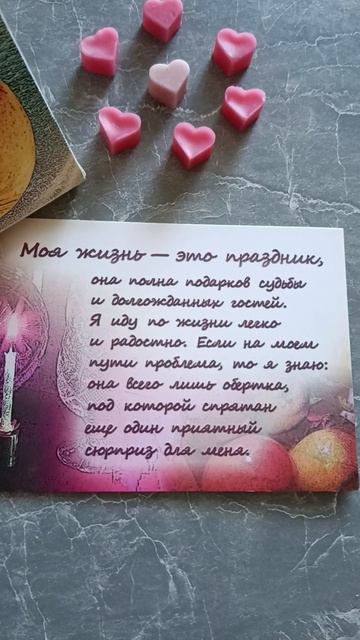 Моя жизнь — это праздник,
она полна подарков судьбы
и долгожданных гостей.
Я иду по жизни легко
и радостно. Если на моем
пути проблема, то я знаю:
она всего лишь обертка,
под которой спрятан
еще один приятный
сюрприз для меня.